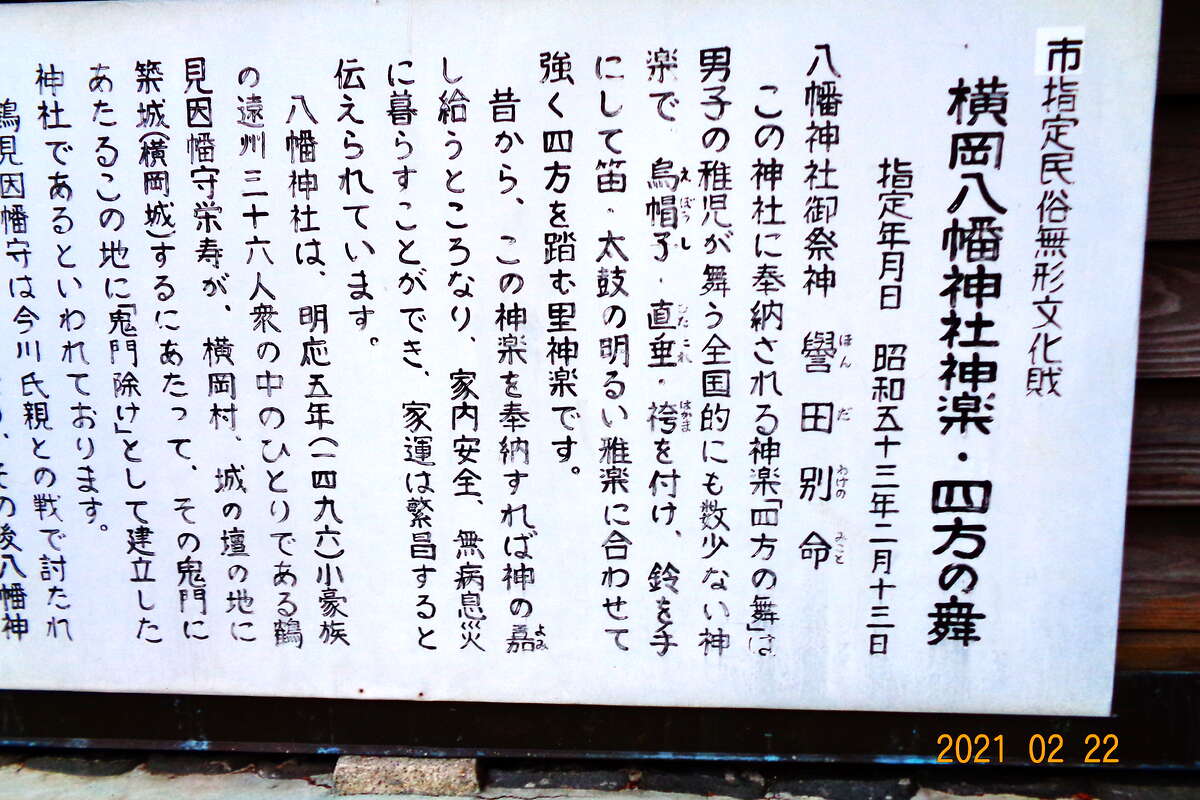 市指定民俗無形文化財
横岡八幡神社神楽・四方の舞
指定年月日 昭和五十三年二月十三日
八幡神社御祭神 譽田別命
ほん だ わけの みこと
この神社に奉納される神楽「四方の舞」は
男子の稚児が舞う全国的にも数少ない神
楽で 烏帽子・直垂・袴を付け、鈴を手
えぼうし ひたこれ はかま
にして笛・太鼓の明るい雅楽に合わせて
強く四方を踏む里神楽です。
昔から、この神楽を奉納すれば神の嘉
よみ
し給うところなり、家内安全、無病息災
に暮らすことができ、家運は繁昌すると
伝えられています。
八幡神社は、明応五年(一四九六)小豪族
の遠州三十六人衆の中のひとりである鶴
見因幡守栄寿が、横岡村、城の壇の地に
築城(横岡城)するにあたって、その鬼門に
あたるこの地に「鬼門除け」として建立した
神社であるといわれております。
鶴見因幡守は今川氏親との戦で討たれ
その後八幡神
2021 02 22